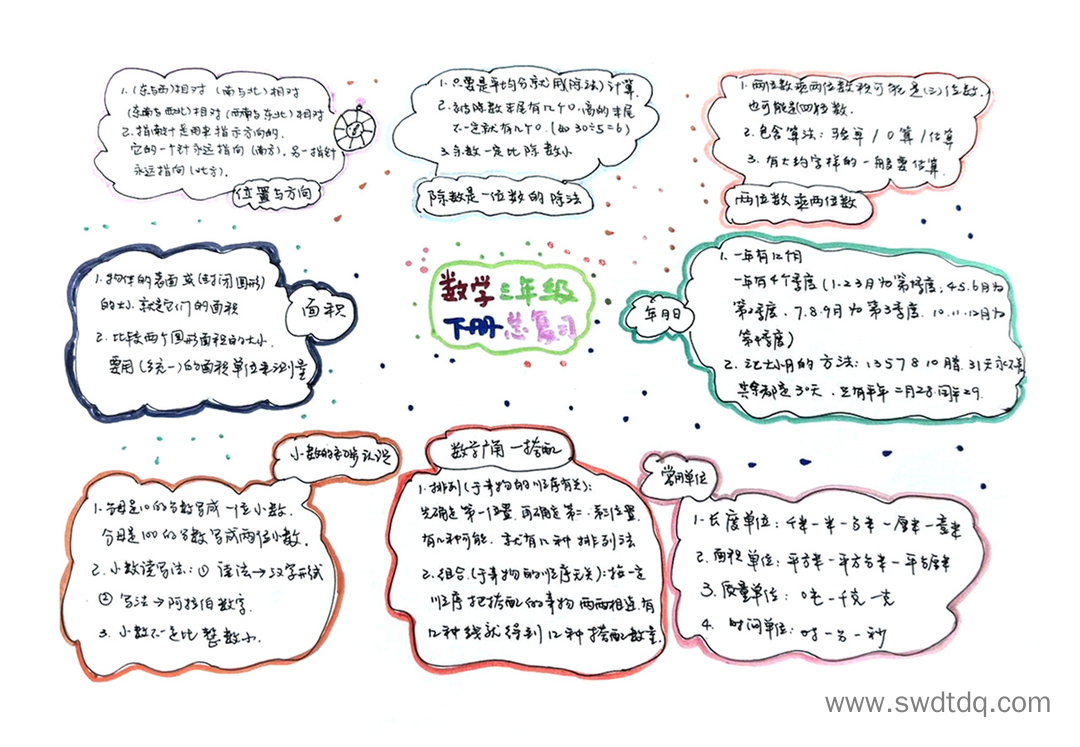 1.(东与西)相对 (南与北)相对
(东南与西北)相对(西南与东北)相对
2.指南针是用来指示方向的.
它的一个针永远指向(南方).另一指针
永远指向(北方).
位置与方向
1.只要是平均分就用(除法)计算.
2.被除数末尾有几个0.商的末尾
不一定就有几个0.(如30÷5=6)
3.余数一定比除数小
除数是一位数的除法
1.两位数乘两位数积可能是(三)位数.
也可能是四位数.
2.包含算法:验算/口算/估算
3.有大约字样的一般要估算.
两位数乘两位数
1.物体的表面或(封闭图形)
的大小.就是它们的面积
2.比较两个图形面积的大小.
要用(统一)的面积单位来测量
面积
数学三年级
下册总复习
年月日
1.一年有12个月
一年有4个季度(1.2.3月为第1季度,4.5.6月为
第2季度、7.8.9月为第3季度.10.11.12月为
第4季度)
2.记大小月的方法:1 3 5 7 8 10腊.31天永不差
其余都是30天.只有平年二月28.闰年29.
小数的初步认识
1.分母是10的分数写成一位小数.
分母是100的分数写成两位小数.
2.小数读写法:①读法→汉字形式
②写法→阿拉伯数字.
3.小数不一定比整数小.
数学广角一搭配
1.排列(与事物的顺序有关):
先确定第一位置.再确定第二.第三位置.
有几种可能.就有几种排列法
2.组合(与事物的顺序无关):按一定
顺序把搭配的事物两两相连.有
几种线就得到几种搭配数量.
常用单位
1.长度单位:千米一米一分米一厘米一毫米
2.面积单位:平方米一平方分米一平方厘米
3.质量单位:吨一千克一克
4.时间单位:时一分一秒
www.swdtdq.com